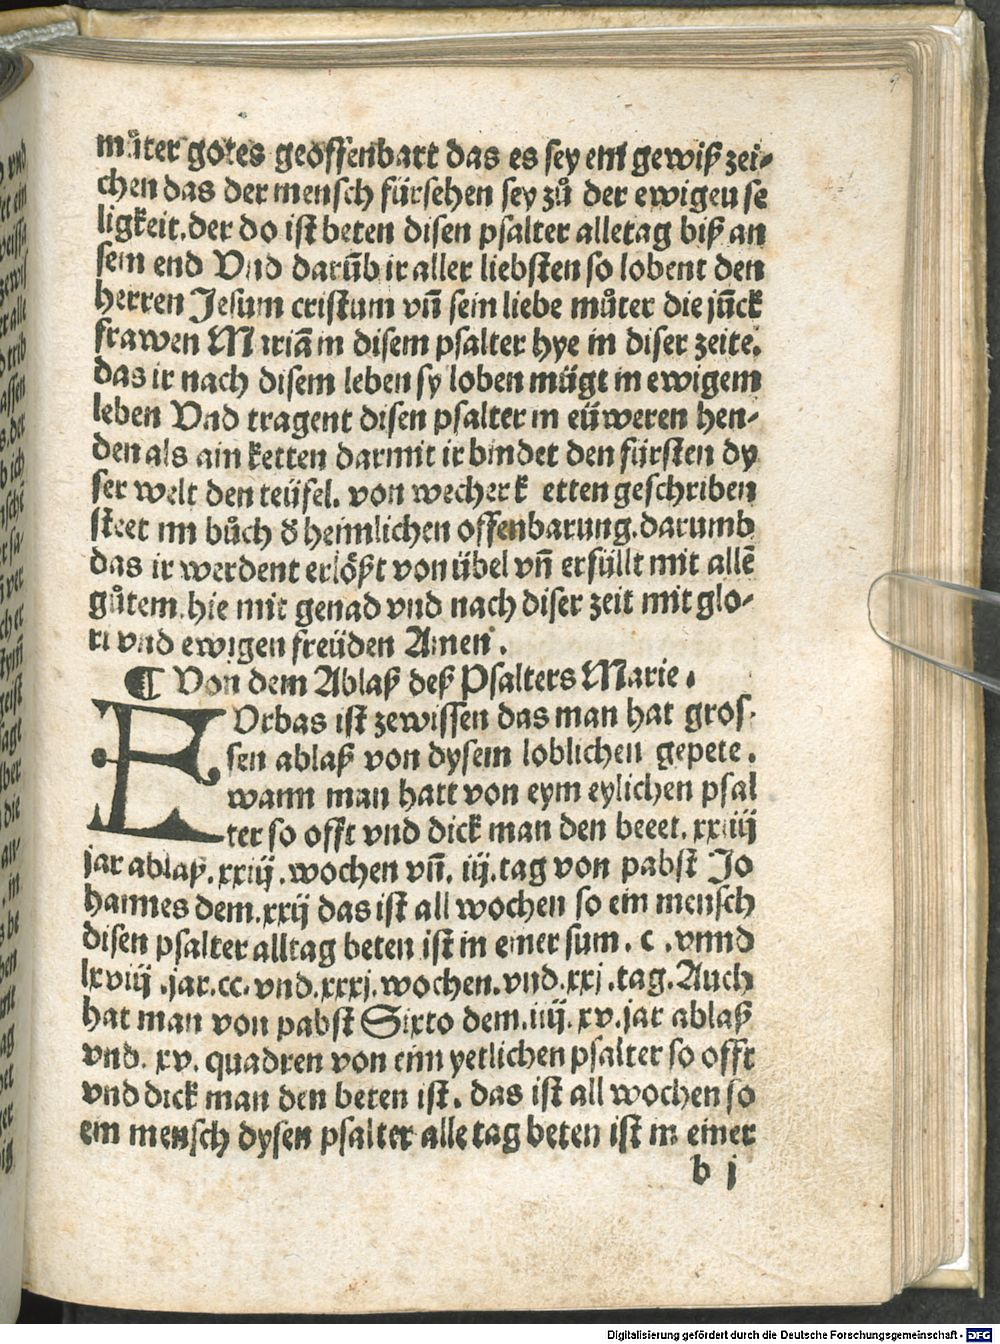 můter gotes geoffenbart das es sey ein gewiß zei-
chen das der mensch fürsehen sey zů der ewigeu se
ligkeit.der do ist beten disen psalter alletag biß an
sem end Vnd darūb ir aller liebsten so lobent den
herren Jesum cristum vn̄ sein liebe můter die jūck
frawen Mariā in disem psalter hye in diser zeite.
das ir nach disem leben sy loben mügt in ewigem
leben Vnd tragent disen psalter in eüweren hen-
den als ain ketten darmit ir bindet den fürsten dy
ser welt den teüfel. von wecher ketten geschriben
steet im bůch d̕ heimlichen offenbarung.darumb
das ir werdent erlößt von übel vn̄ erfüllt mit allē
gůtem.hie mit genad vnd nach diser zeit mit glo-
ri vnd ewigen freüden Amen.
¶ Von dem Ablaß deß Psalters Marie.
EOrbas ist zewissen das man hat gros-
sen ablaß von dysem loblichen gepete.
wann man hatt von eym eylichen psal
ter so offt vnd dick man den beeet. xxiiij
jar ablaß.xxiij.wochen vn̄. iij.tag von pabst Jo
hannes dem.xxij das ist all wochen so ein mensch
disen psalter alltag beten ist in einer sum. c .vnnd
lxviij .jar.cc.vnd.xxxj.wochen.vnd.xxj.tag.Auch
hat man von pabst Sixto dem.iiij.xv.jar ablaß
vnd. xv. quadren von eim yetlichen psalter so offt
vnd dick man den beten ist. das ist all wochen so
ein mensch dysen psalter alle tag beten ist in einer
b j
Digitalisierung gefördert durch die Deutsche Forschungsgemeinschaft - DFG